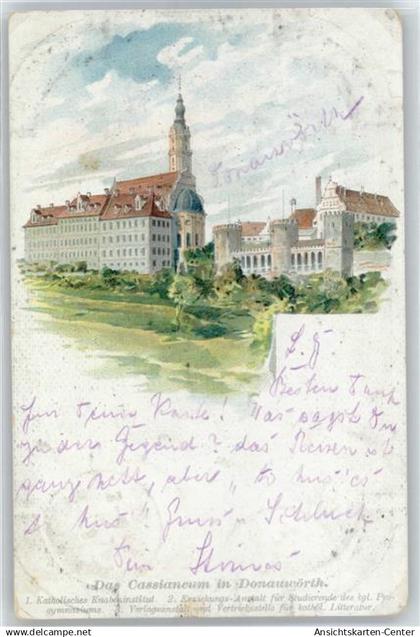 Donauwörth
L. F.
Besten Dank
für Deine Karte! Was sagst Du
zu der Gegend? das Reisen ist
ganz nett, aber
Gruss
Dein
Das Cassianeum in Donauwörth.
1. Katholisches Knabeninstitut. 2. Erziehungs-Anstalt für Studierende des kgl. Pro-
gymnasiums. 3. Verlagsanstalt und Vertriebsstelle für kathol. Litteratur.
Ansichtskarten-Center
www.ansichtskarten-center.de